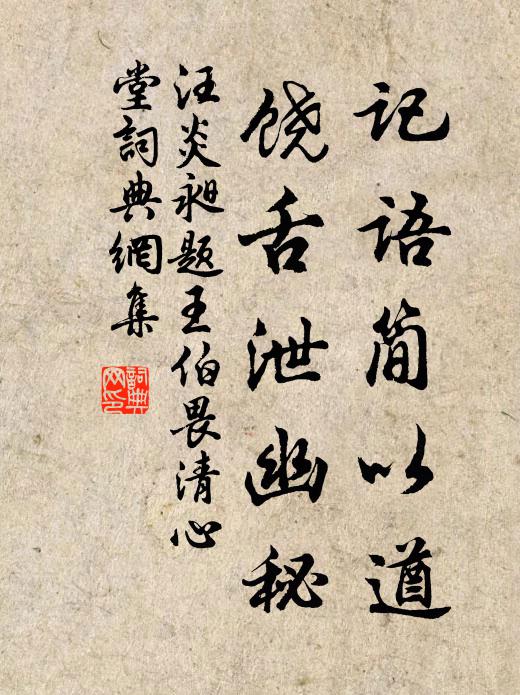 记语简以遒
饶舌泄幽秘
汪炎昶题王伯畏清心
堂詞典網集
詞典網印